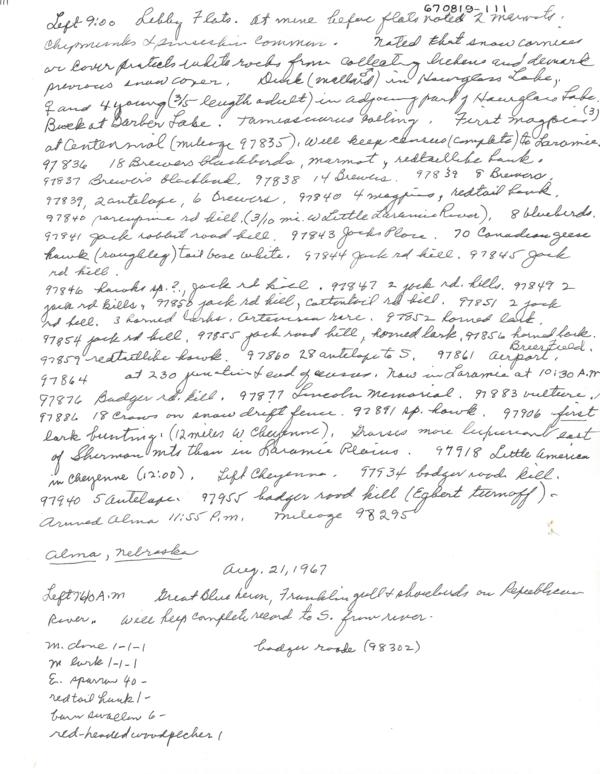 670819-111
Left 9:00 Libby Flats. At mine before flats noted 2 marmots.
Chipmunks & common. Noted that snow cornices
or cover protects white rocks from collecting lichens and demark
previous snow cover. Duck (mallard) in Hourglass Lake,
♀ and 4 young (3/5 length adult) in adjoining part of Hourglass Lake.
Buck at Barber Lake. Tamiasciurus calling. First magpies (3)
at Centennial (mileage 97835). Will keep census (complete) to Laramie.
97836 18 Brewers blackbirds, marmot, redtaillike hawk.
97837 Brewer's blackbird. 97838 14 Brewers. 97839 8 Brewers.
97839, 2 antelope, 6 Brewers. 97840 4 magpies, redtail hawk.
97840 porcupine rd kill. (3/10 mi. W Little Laramie River). 8 bluebirds.
97841 jack rabbit road kill. 97843 Jocks Place. 70 Canadian geese
hawk (roughleg) tail base white. 97844 jack rd kill. 97845 jack
rd kill.
97846 hawks sp.?, jack rd kill. 97847 2 jack rd. kills. 97849 2
jack rd kills, 97850 jack rd kill, cottontail rd kill. 97851 2 jack
rd kill. 3 horned larks. Artemisia rare. 97852 horned lark.
97854 jack rd kill, 97855 jack road kill, horned lark. 97856 horned lark.
97859 redtaillike hawk. 97860 28 antelope to S. 97861 Brees Field Airport.
97864 at 230 junction & end of census. Now in Laramie at 10:30 A.M
97876 Badger rd. kill. 97877 Lincoln Memorial. 97883 vulture,
97886 18 crows on snow drift fence. 97891 sp. hawk. 97906 first
lark bunting. (12 miles W Cheyenne). Grasses more east
of Sherman Mts than in Laramie Plains. 97918 Little America
in Cheyenne (12:00). Left Cheyenne. 97934 badger road kill.
97940 5 antelope. 97955 badger road kill (Egbert turnoff) -
Arrived Alma 11:55 P.m. Mileage 98295
Alma, Nebraska
Aug. 21, 1967
Left 7:40 A.M Great Blue heron, Franklin gull & shorebirds on Republican
River. Will keep complete record to S. from river.
M. dove 1-1-1 badger roade (98302)
M lark 1-1-1
E. sparrow 40-
redtail hawk 1-
barn swallow 6-
red-headed woodpecker 1